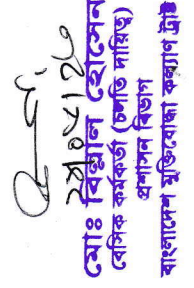 ২৭/০৮/২০
মোঃ বিল্লাল হোসেন
বেসিক কর্মকর্তা (চলতি দায়িত্ব)
প্রশাসন বিভাগ
বাংলাদেশ মুক্তিযোদ্ধা কল্যাণ ট্রাষ্ট